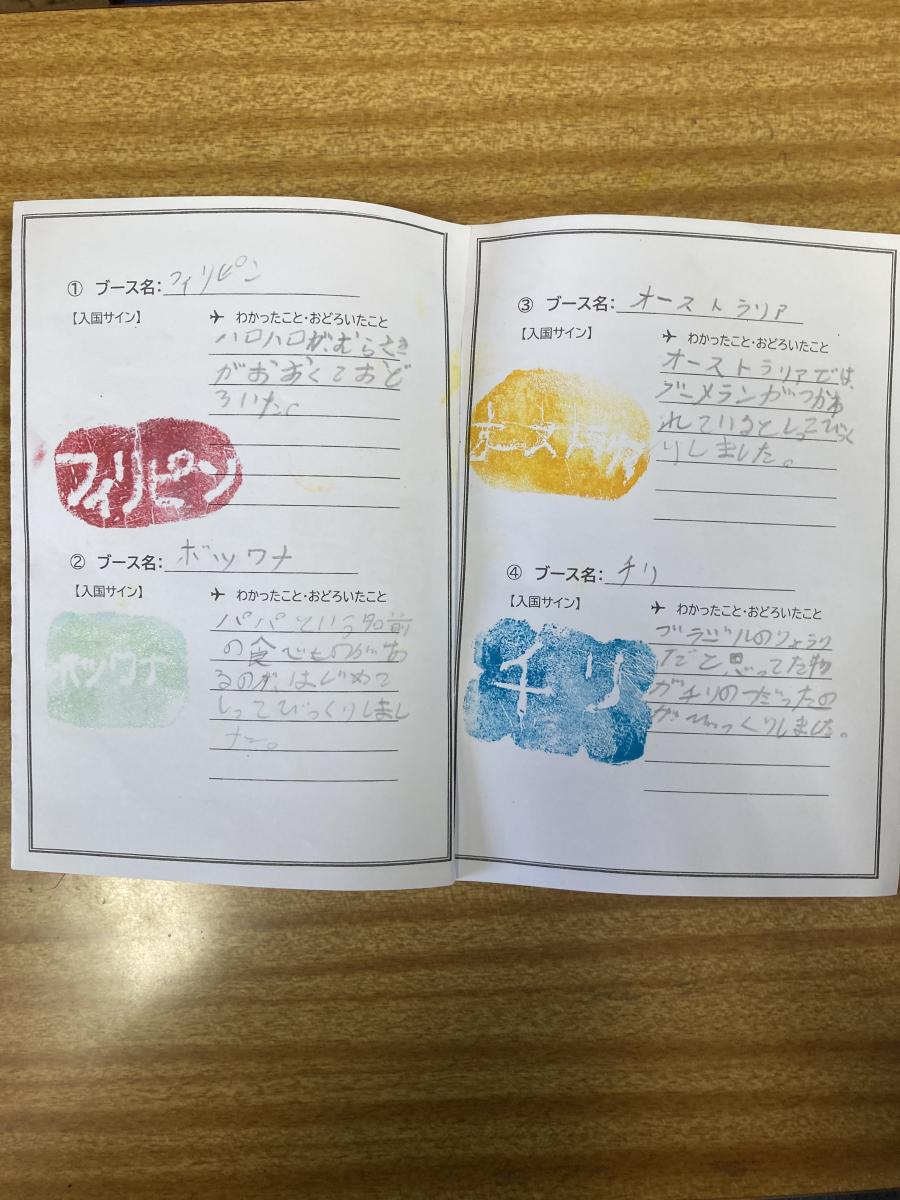 ① ブース名：フィリピン
【入国サイン】
✈ わかったこと・おどろいたこと
ハロハロが、むらさき
がおおくておど
ろいた。
フィリピン
② ブース名：ボツワナ
【入国サイン】
✈ わかったこと・おどろいたこと
パパという名前
の食べものがあ
るのが、はじめて
しってびっくりしまし
た。
ボツワナ
③ ブース名：オーストラリア
【入国サイン】
✈ わかったこと・おどろいたこと
オーストラリアでは、
ブーメランがつかわ
れているとしってびっく
りしました。
オーストラリア
④ ブース名：チリ
【入国サイン】
✈ わかったこと・おどろいたこと
ブラジルのりょうり
だと思ってた物
がチリのだったの
がびっくりしました。
チリ